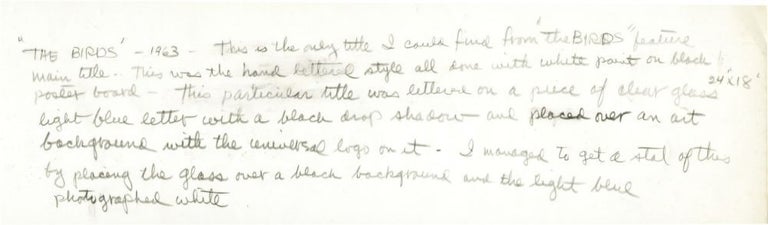 "THE BIRDS" - 1963 - This is the only title I could find from "the BIRDS" feature
main title.. This was the hand lettered style all done with white paint on black
poster board - This particular title was lettered on a piece of clear glass 24"x18"
light blue letter with a black drop shadow and placed over an art
background with the universal logo on it - I managed to get a stal of this
by placing the glass over a black background and the light blue
photographed white